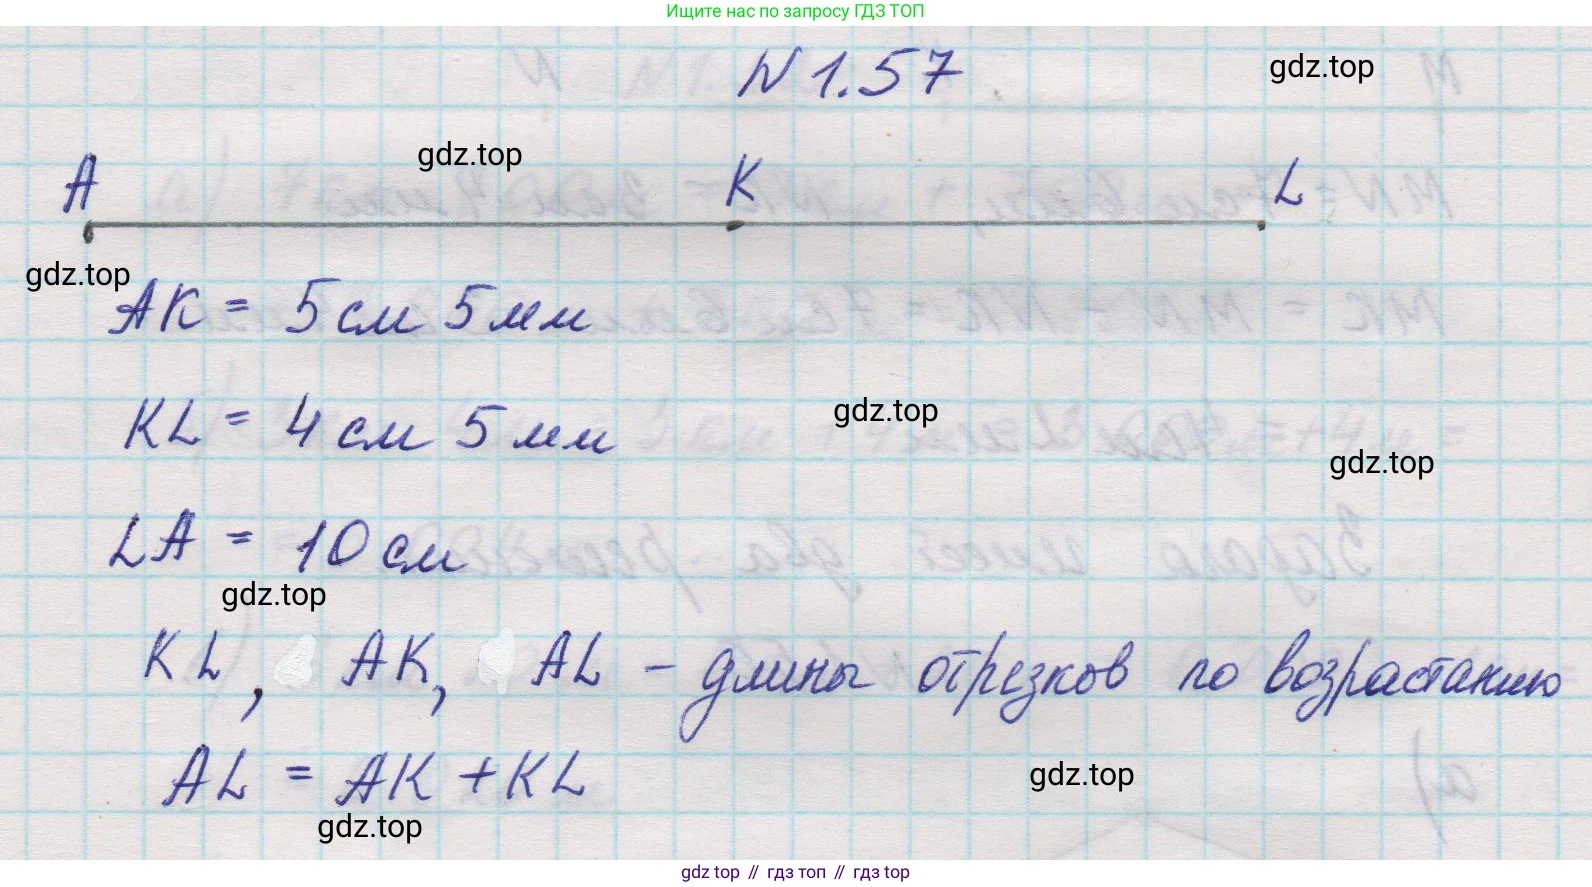 Ищите нас по запросу ГДЗ ТОП
N 1.57
gdz.top
gdz.top
A K L
gdz.top
AK = 5 см 5 мм
KL = 4 см 5 мм
gdz.top
gdz.top
LA = 10 см
gdz.top
KL, AK, AL – длины отрезков по возрастанию
AL = AK + KL
gdz.top
gdz.top
gdz top // гдз топ // гдз top